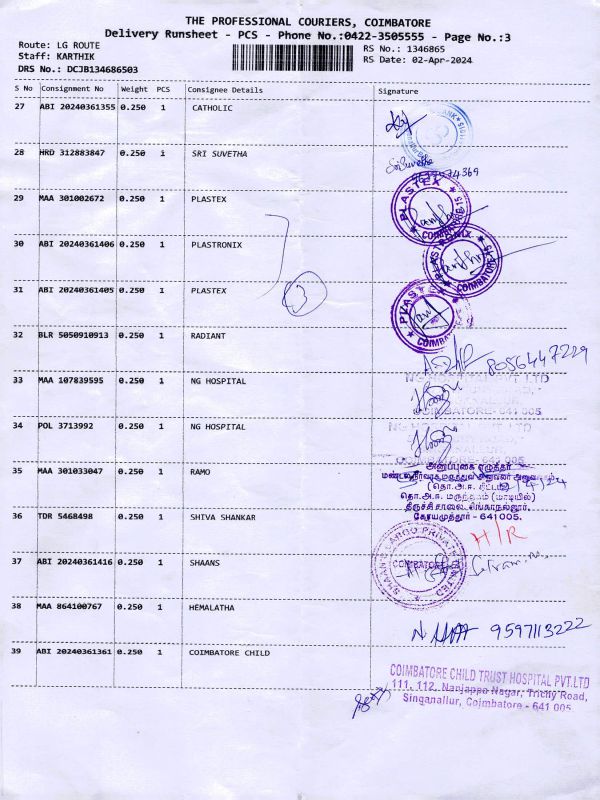 THE PROFESSIONAL COURIERS, COIMBATORE
Delivery Runsheet - PCS - Phone No.:0422-3505555 - Page No.:3
Route: LG ROUTE
RS No.: 1346865
Staff: KARTHIK
RS Date: 02-Apr-2024
DRS No.: DCJB134686503
S No Consignment No Weight PCS Consignee Details Signature
27 ABI 20240361355 0.250 1 CATHOLIC
28 HRD 312883847 0.250 1 SRI SUVETHA
SriSuvetha
29 MAA 301002672 0.250 1 PLASTEX
PLASTEX COIMBATORE-15
30 ABI 20240361406 0.250 1 PLASTRONIX
PLASTRONIX COIMBATORE-15
31 ABI 20240361405 0.250 1 PLASTEX
3
PLASTEX
32 BLR 5050910913 0.250 1 RADIANT
8056447229
33 MAA 107839595 0.250 1 NG HOSPITAL
COIMBATORE-641 005
34 POL 3713992 0.250 1 NG HOSPITAL
COIMBATORE-641 005
35 MAA 301033047 0.250 1 RAMO
அனுப்புகை எழுத்தர்
திருச்சி சாலை, சிங்காநல்லூர்,
கோயமுத்தூர் - 641005.
36 TDR 5468498 0.250 1 SHIVA SHANKAR
H/R
37 ABI 20240361416 0.250 1 SHAANS
COIMBATORE
38 MAA 864100767 0.250 1 HEMALATHA
9597113222
39 ABI 20240361361 0.250 1 COIMBATORE CHILD
COIMBATORE CHILD TRUST HOSPITAL PVT.LTD
111, 112, Nanjappa Nagar, Trichy Road,
Singanallur, Coimbatore - 641 005